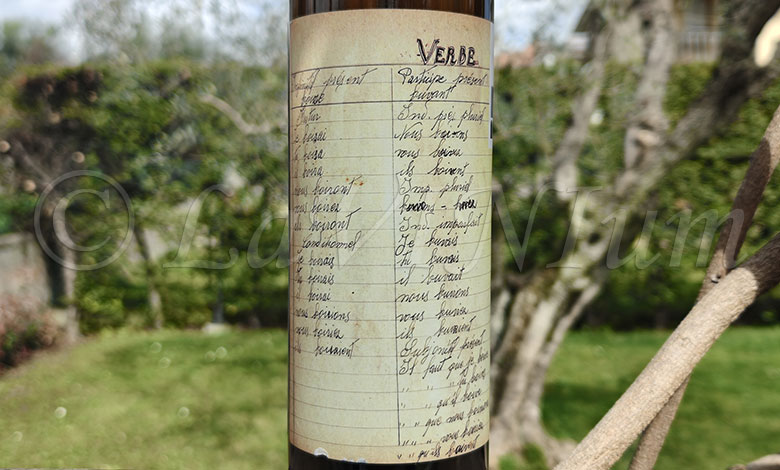 VERBE
Infinitif présent Participe présent
buvant
Futur Ind. prés pluriel
Je boirai Nous buvons
boira vous buvez
ils boivent
nous boirons Imp. pluriel
vous boirez buvons - buvez
ils boiront Ind. imparfait
Conditionnel Je buvais
Je boirais tu buvais
tu boirais il buvait
il boirait nous buvions
nous boirions vous buviez
vous boiriez ils buvaient
ils boiraient Subjonctif présent
Il faut que je boive
" " tu boives
" " qu'il boive
" " que nous buvions
" " vous buviez
" " qu'ils boivent
© LaVINIum